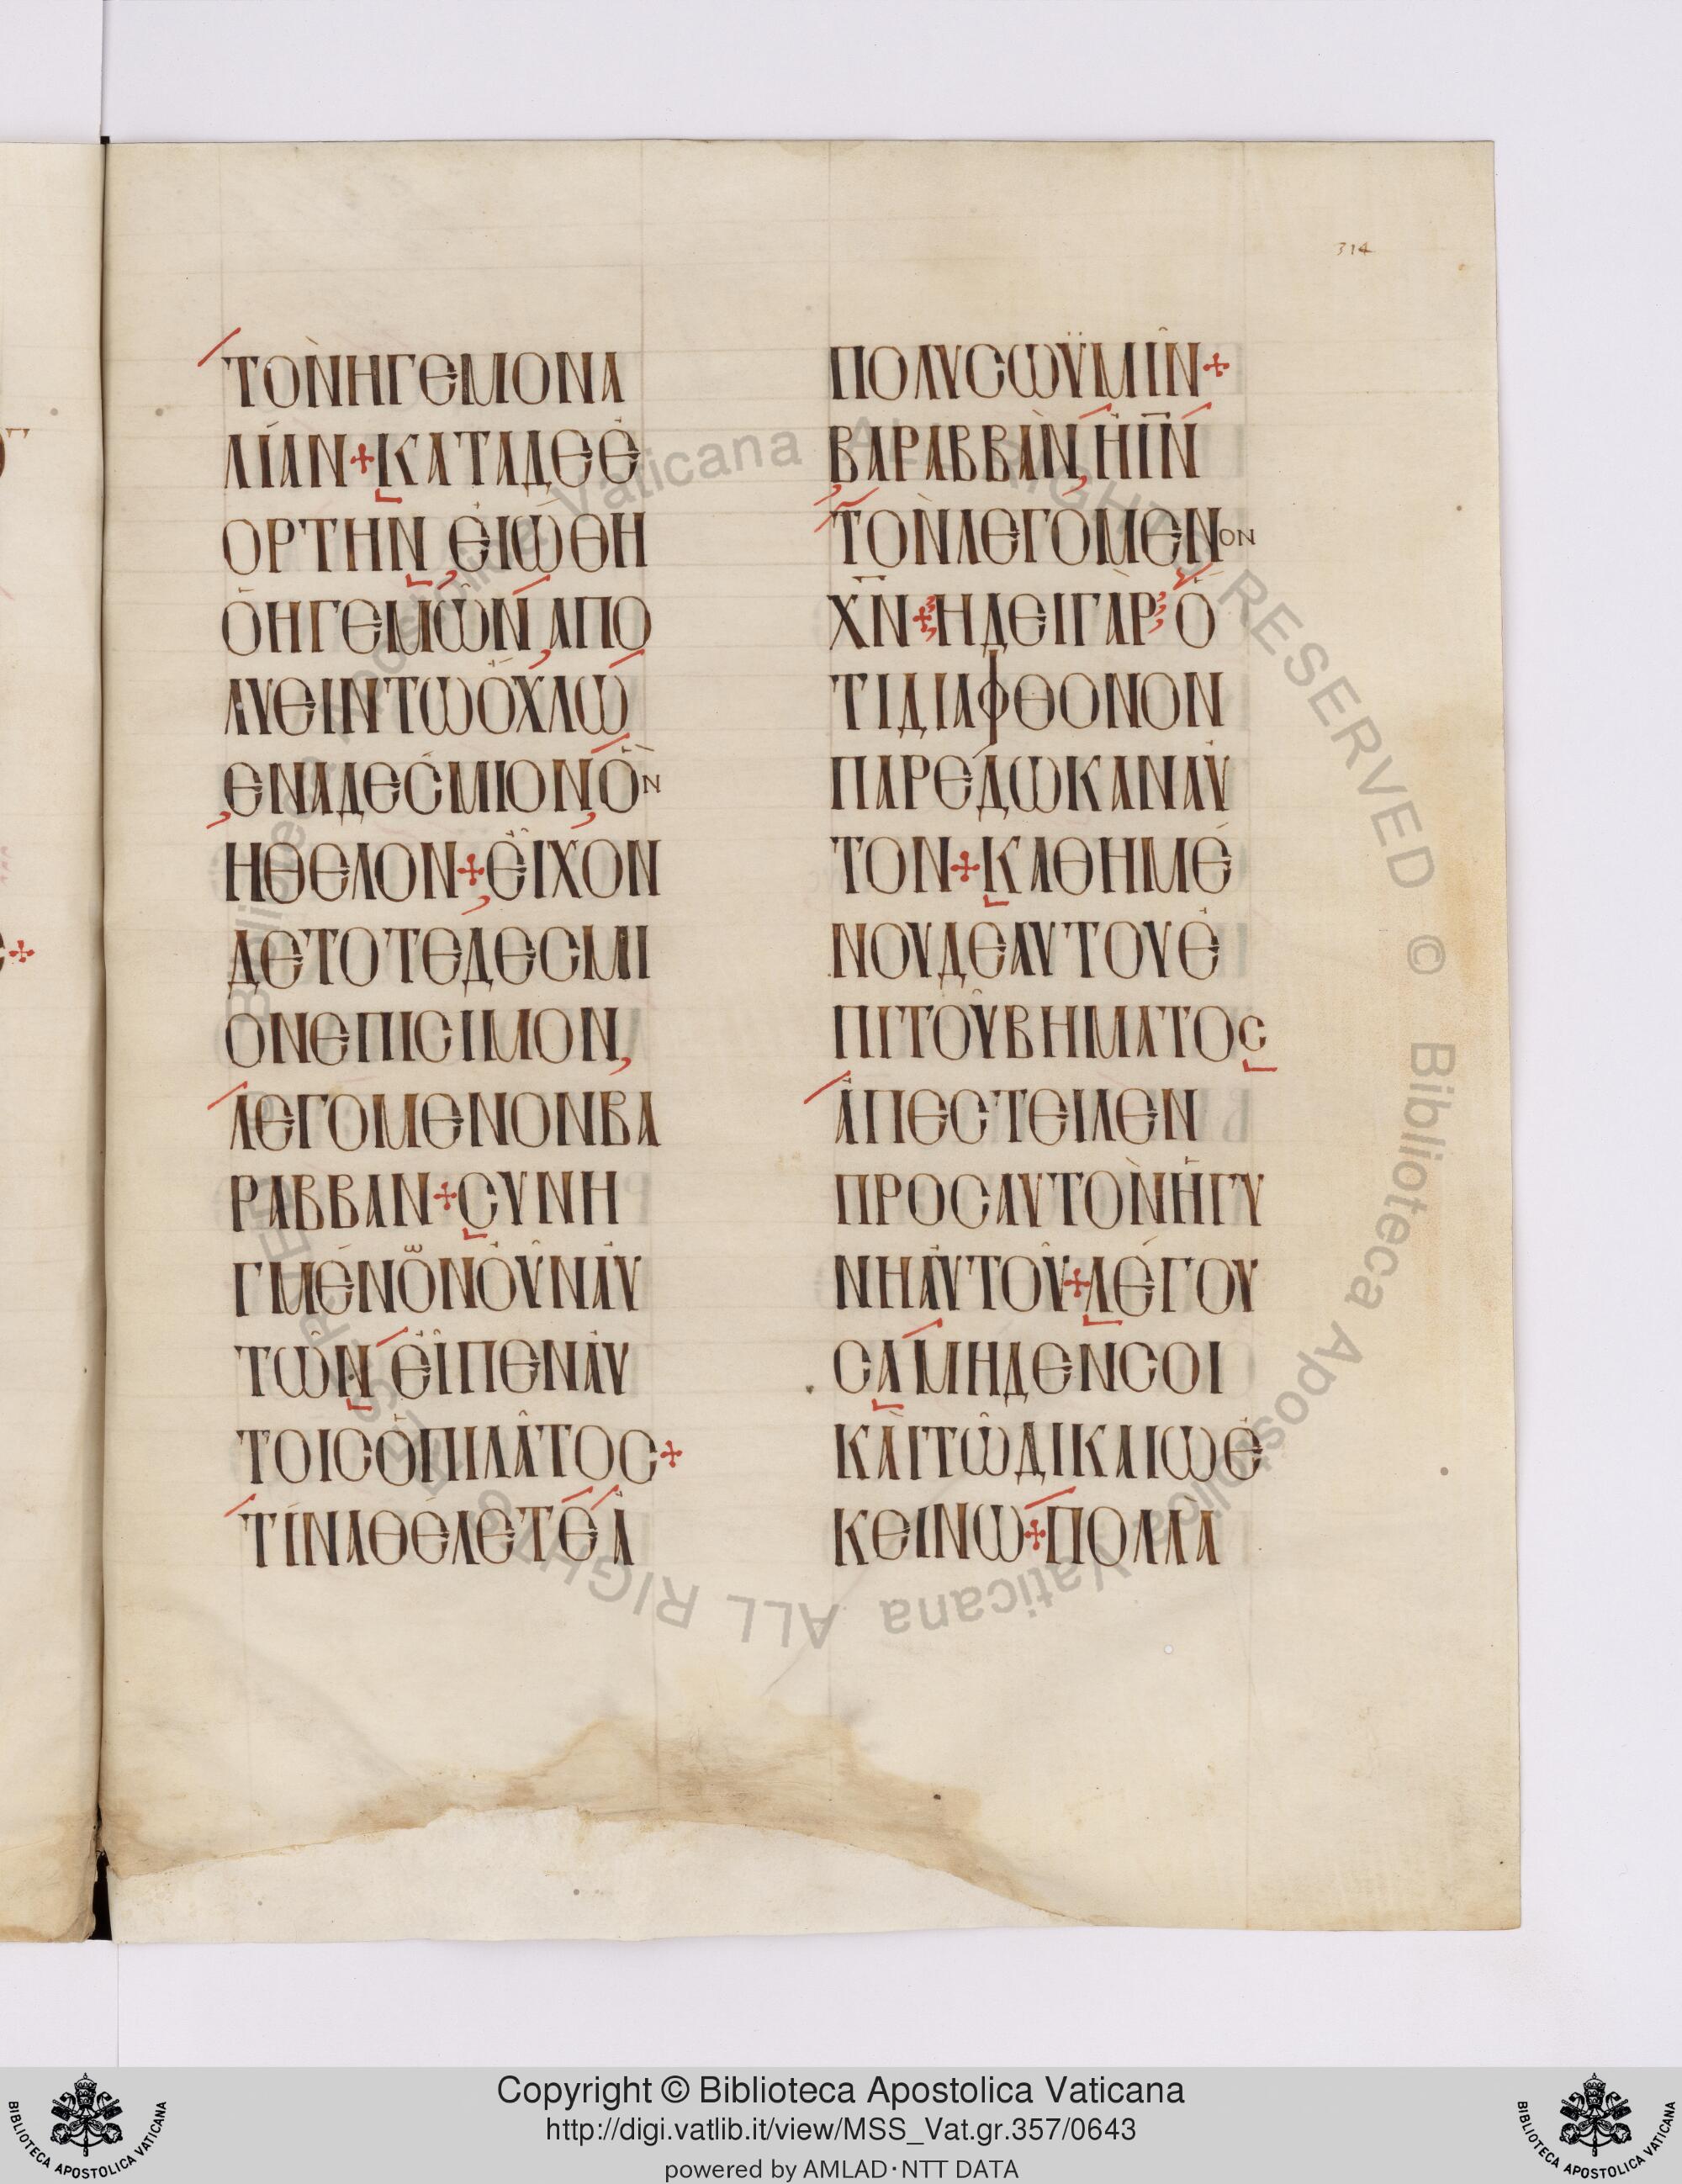 314
ΤῸΝΗΓΕΜΟΝΑ
ΛΊΑΝ+ΚΑΤΑΔΕΕ
ΟΡΤΗΝ,ΕΙΩΘΗ
ΟΗΓΕΜΩΝ,ΑΠΟ
ΛΥΕΙΝΤΩΟΧΛΩ
ΕΝΑΔΕΣΜΙΟΝ,ΟΝ
ΗΘΕΛΟΝ+ΕΙΧΟΝ
ΔΕΤΟΤΕΔΕCΜΙ
ΟΝΕΠΙCΙΜΟΝ,
ΛΕΓΟΜΕΝΟΝΒΑ
ΡΑΒΒΑΝ+CΥΝΗ
ΓΜΕΝΩΝΟΥΝΑΥ
ΤΩΝΕΙΠΕΝΑΥ
ΤΟΙCΟΠΙΛΑΤΟC+
ΤΙΝΑΘΕΛΕΤΕΑ
ΠΟΛΥCΩΫΜΙΝ+
ΒΑΡΑΒΒΑΝ,ΗΙ̅Ν̅
ΤΟΝΛΕΓΟΜΕΝΟΝ
Χ̅Ν̅+ΗΔΕΙΓΑΡΟ
ΤΙΔΙΑΦΘΟΝΟΝ
ΠΑΡΕΔΩΚΑΝΑΥ
ΤΟΝ+ΚΑΘΗΜΕ
ΝΟΥΔΕΑΥΤΟΥΕ
ΠΙΤΟΥΒΗΜΑΤΟC
ΑΠΕCΤΕΙΛΕΝ
ΠΡΟCΑΥΤΟΝΗΓΥ
ΝΗΑΥΤΟΥ+ΛΕΓΟΥ
CΑΜΗΔΕΝCΟΙ
ΚΑΙΤΩΔΙΚΑΙΩΕ
ΚΕΙΝΩ+ΠΟΛΛΑ
Biblioteca Apostolica Vaticana ALL RIGHTS RESERVED © Biblioteca Apostolica Vaticana ALL RIGHTS RESERVED
Copyright © Biblioteca Apostolica Vaticana
http://digi.vatlib.it/view/MSS_Vat.gr.357/0643
powered by AMLAD・NTT DATA
BIBLIOTECA APOSTOLICA VATICANA
BIBLIOTECA APOSTOLICA VATICANA